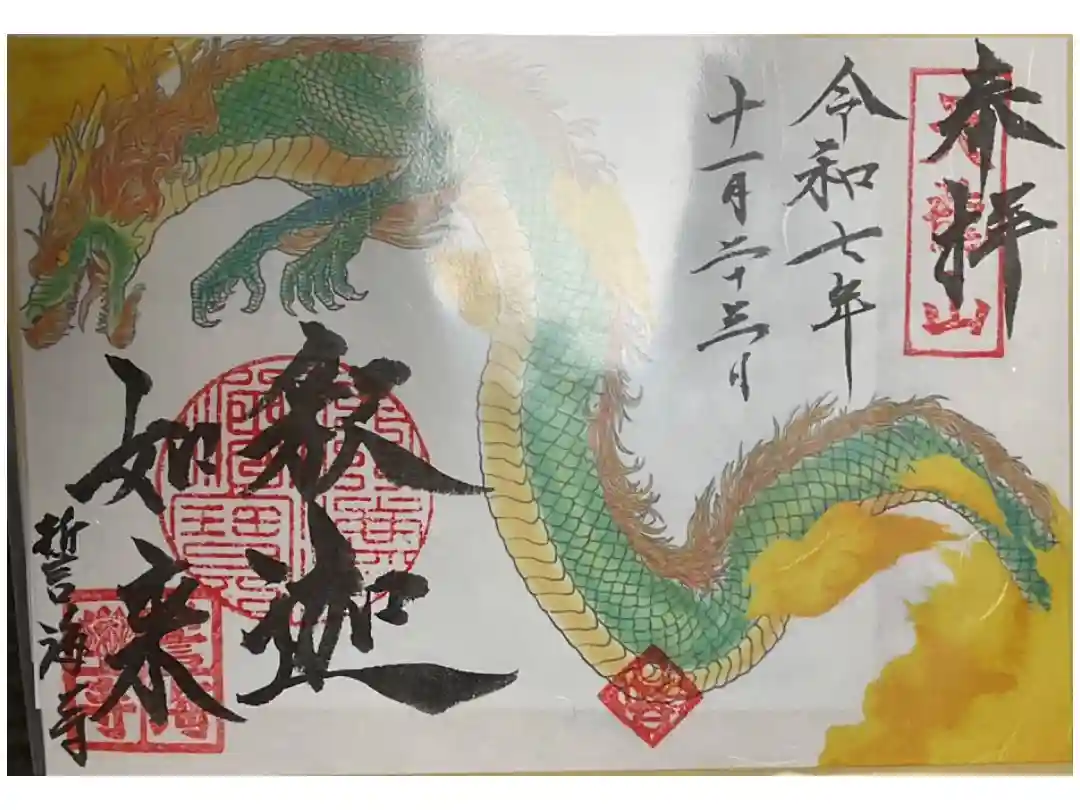 奉拝
山
令和七年
十一月二十三日
釈迦
如来
誓海寺